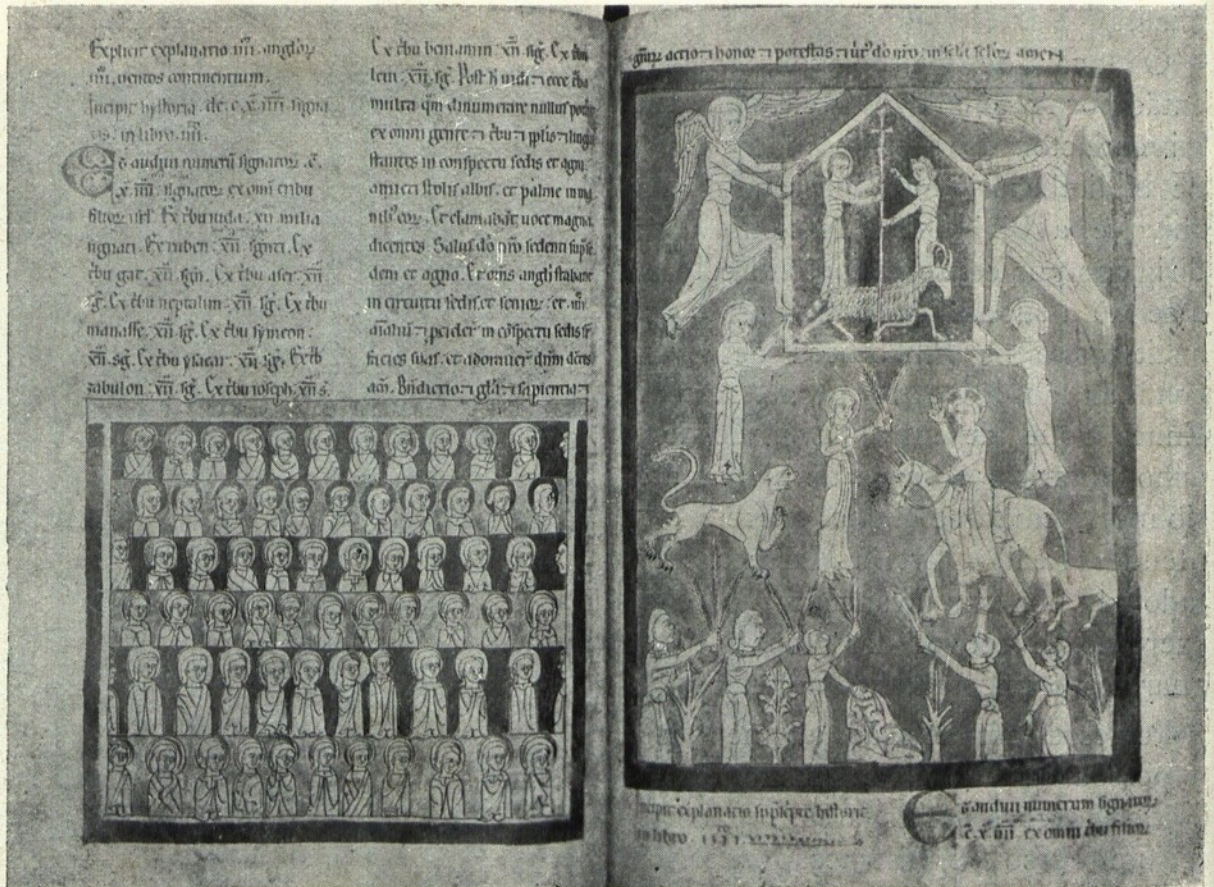 Explicit explanatio iiii. anglor
iiii. uentos continentium.
Incipit hystoria. de. c. x. iiii. signa
tis. in libro. iiii.
Et audiui numerū signator. c.
x. iiii. signator ex omi tribu
filior isrl. Ex tribu iuda. xii milia
signati. Ex ruben. xii. signti. Ex
tbu gat. xii. sgn. Ex tbu aser. xii
sg. Ex tbu neptalim. xii. sig. Ex tbu
manasse. xii. sg. Ex tbu symeon:
xii. sg. Ex tbu ysacar. xii. sig. Ex tb
zabulon. xii. sg. Ex tbu ioseph. xii s.
Ex tbu beniamin. xii. sig. Ex tbu
leui. xii. sg. Post h uidi ⁊ ecce tba
multa qm dinumerare nullus pot
ex omni gente ⁊ tbu ⁊ pplis ⁊ lingis
stantes in conspectu sedis et agni
amicti stolis albis. et palme in ma
nib; eor. Et clamabāt uoce magna
dicentes. Salus dō nrō sedenti sup se
dem et agno. Et oms angli stabant
in circuitu sedis et senior et. iiii
aīaliū ⁊ in cōspectu sedis
facies suas. et adorauer dnm dctes
am. Bndictio ⁊ glā ⁊ sapientia ⁊
grar actio ⁊ honor ⁊ potestas ⁊ uirt dō nrō in scla sclor amen
Incipit explanatio sup hystorie
in libro
Et audiui numerum signator
c. x. iiii ex omni tbu filior